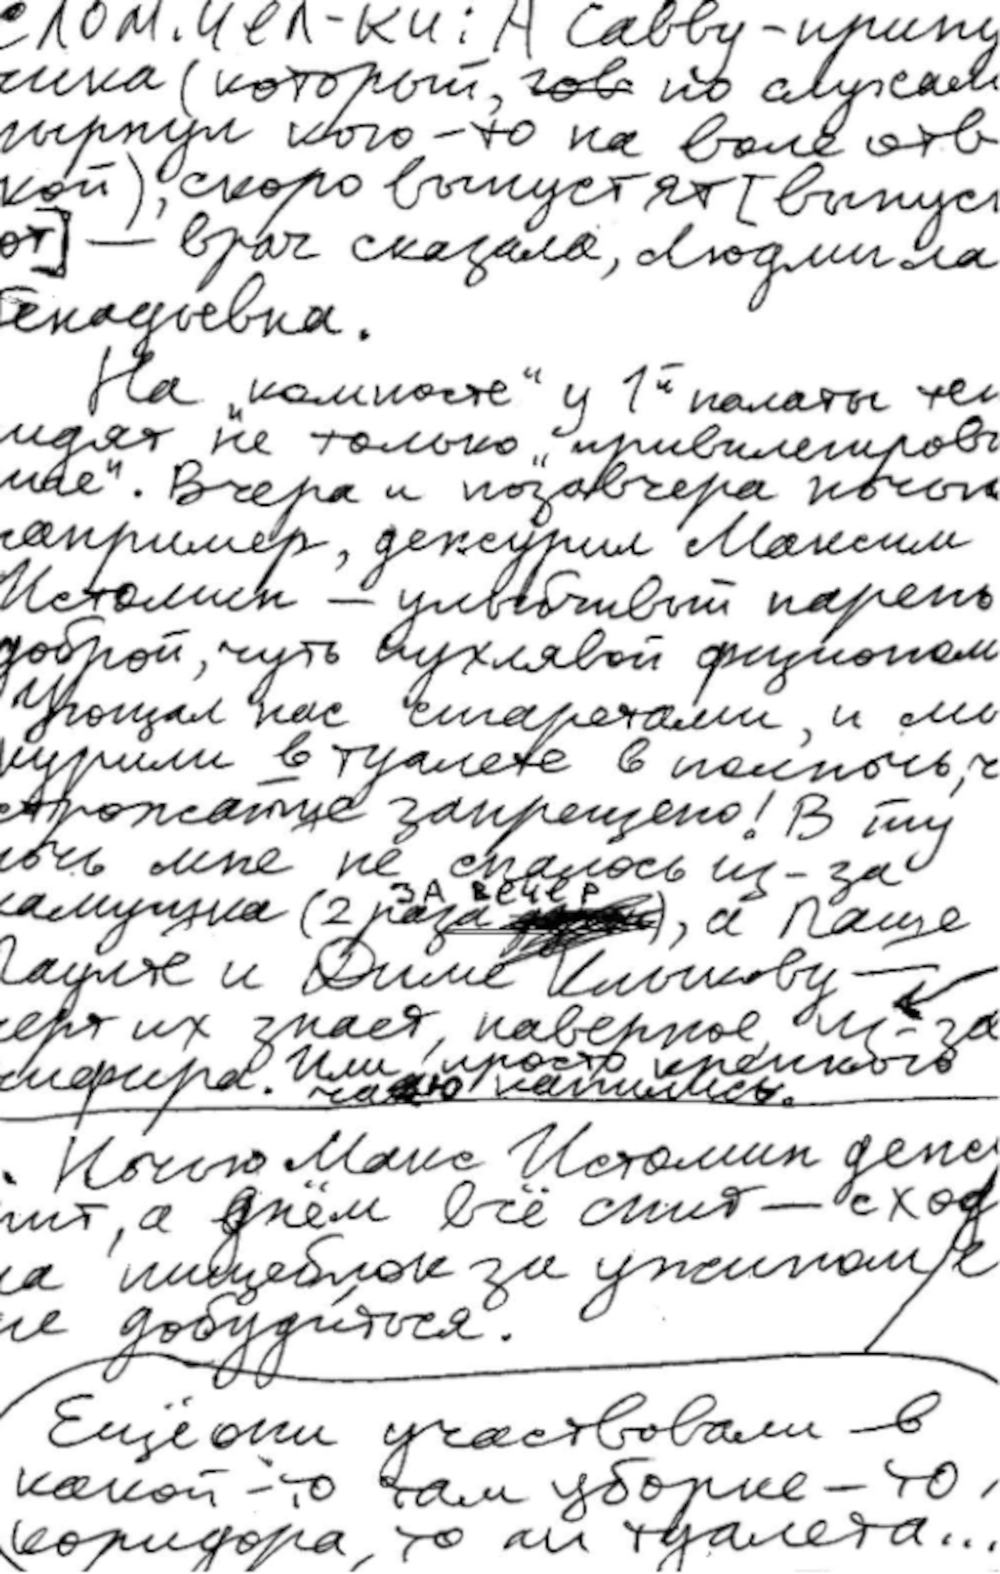 слом. чел-ки: А Савву-припу
чика (который, гов по слухам
пырнул кого-то на воле отв
кой), скоро выпустят [выпус
от] — врач сказала, Людмила
Генадьевна.
На „компосте“ у 1й палаты теп
идят не только „привилегиров
ные“. Вчера и позавчера ночью
например, дежурил Максим
Истомин — улыбчивый парень
доброй, чуть пухлявой физионом
Угощал нас сигаретами, и мы
курили в туалете в полночь, ч
строжайше запрещено! В ту
ночь мне не спалось из-за
камушка (2 раза ЗА ВЕЧЕР), а Паше
Паулю и Диме Клыкову —
черт их знает, наверное, из-за
чифира. Или просто крепкого
чаю напились.
. Ночью Макс Истомин деж
ит, а днём всё спит — сход
на пищеблок за ужином е
не добудиться.
Ещё они участвовали в
какой-то там уборке — то,
коридора, то ли туалета...